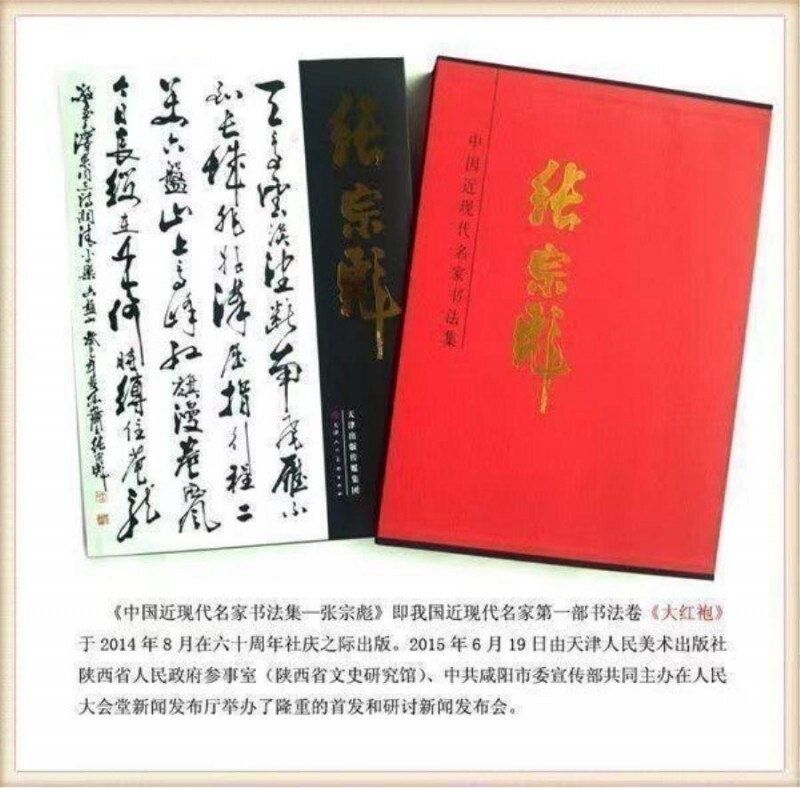 天高雲淡望断南飛雁不
到长城非好漢屈指行程二
萬六盤山上高峰红旗漫卷西风
今日长缨在手何時缚住苍龙
六盘山
张宗彪
张宗彪
天津出版传媒集团
天津人民美术出版社
中国近现代名家书法集
张宗彪
《中国近现代名家书法集—张宗彪》即我国近现代名家第一部书法卷《大红袍》
于2014年8月在六十周年社庆之际出版。2015年6月19日由天津人民美术出版社
陕西省人民政府参事室（陕西省文史研究馆）、中共咸阳市委宣传部共同主办在人民
大会堂新闻发布厅举办了隆重的首发和研讨新闻发布会。